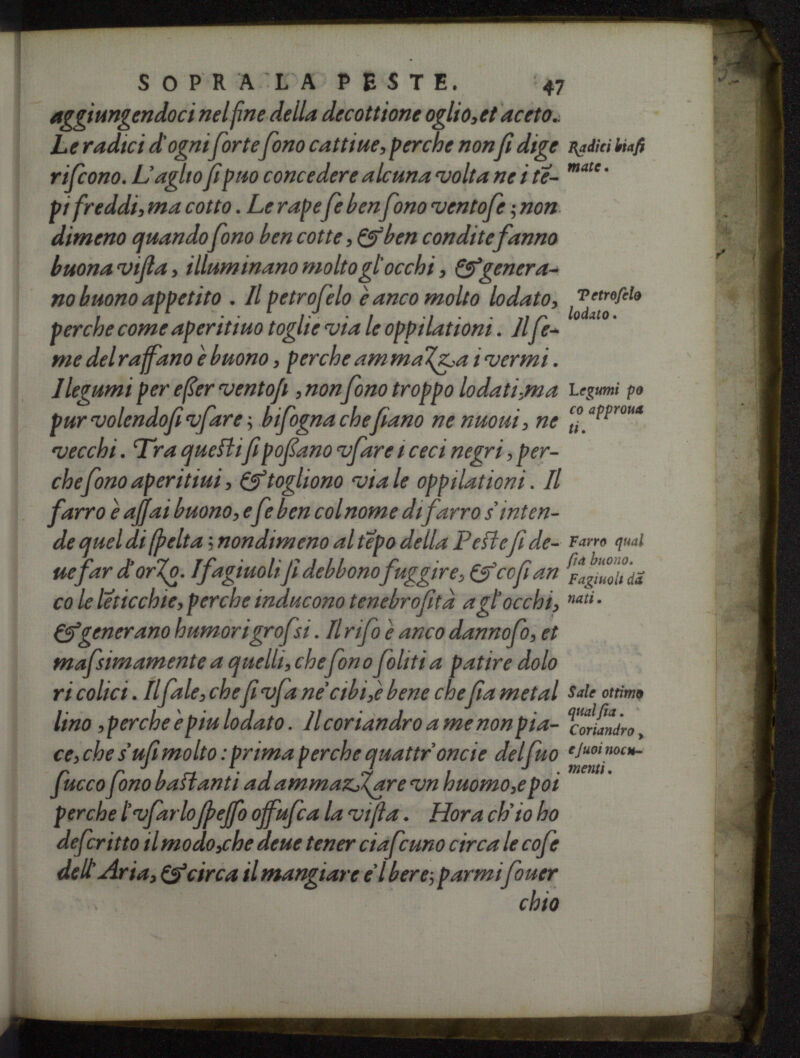 SOPRA LA PESTE. 47
aggiungendoci nel fine della decottione oglio, et aceto.
Le radici d'ogni sorte sono cattiue, perche non si dige
riscono. L'aglio si puo concedere alcuna volta ne i tē-
pi freddi, ma cotto. Le rape se ben sono ventose; non
dimeno quando sono ben cotte, & ben condite fanno
buona vista, illuminano molto gl'occhi, & genera-
no buono appetito. Il petroselo è anco molto lodato,
perche come aperitiuo toglie via le oppilationi. Il se-
me del raffano è buono, perche ammazza i vermi.
I legumi per esser ventosi, non sono troppo lodati, ma
pur volendosi vsare; bisogna che siano ne nuoui, ne
vecchi. Tra questi si possano vsare i ceci negri, per-
che sono aperitiui, & togliono via le oppilationi. Il
farro è assai buono, e se ben col nome di farro s'inten-
de quel di spelta; nondimeno al tēpo della Peste si de-
ue far d'orzo. I fagiuoli si debbono fuggire, & cosi an
co le lēticchie, perche inducono tenebrosità a gl'occhi,
& generano humori grossi. Il riso è anco dannoso, et
massimamente a quelli, che sono soliti a patire dolo
ri colici. Il sale, che si vsa ne' cibi, è bene che sia metal
lino, perche è piu lodato. Il coriandro a me non pia-
ce, che s'usi molto: prima perche quattr'oncie del suo
succo sono bastanti ad ammazzare vn huomo, e poi
perche l'vsarlo spesso offusca la vista. Hora ch'io ho
descritto il modo, che deue tener ciascuno circa le cose
dell'Aria, & circa il mangiare e'l bere; parmi souer
chio
Radici biasi
mate.
Petroselo
lodato.
Legumi po
co approua
ti.
Farro qual
sia buono.
Fagiuoli dā
nati.
Sale ottimo
qual sia.
Coriandro,
e suoi nocu-
menti.